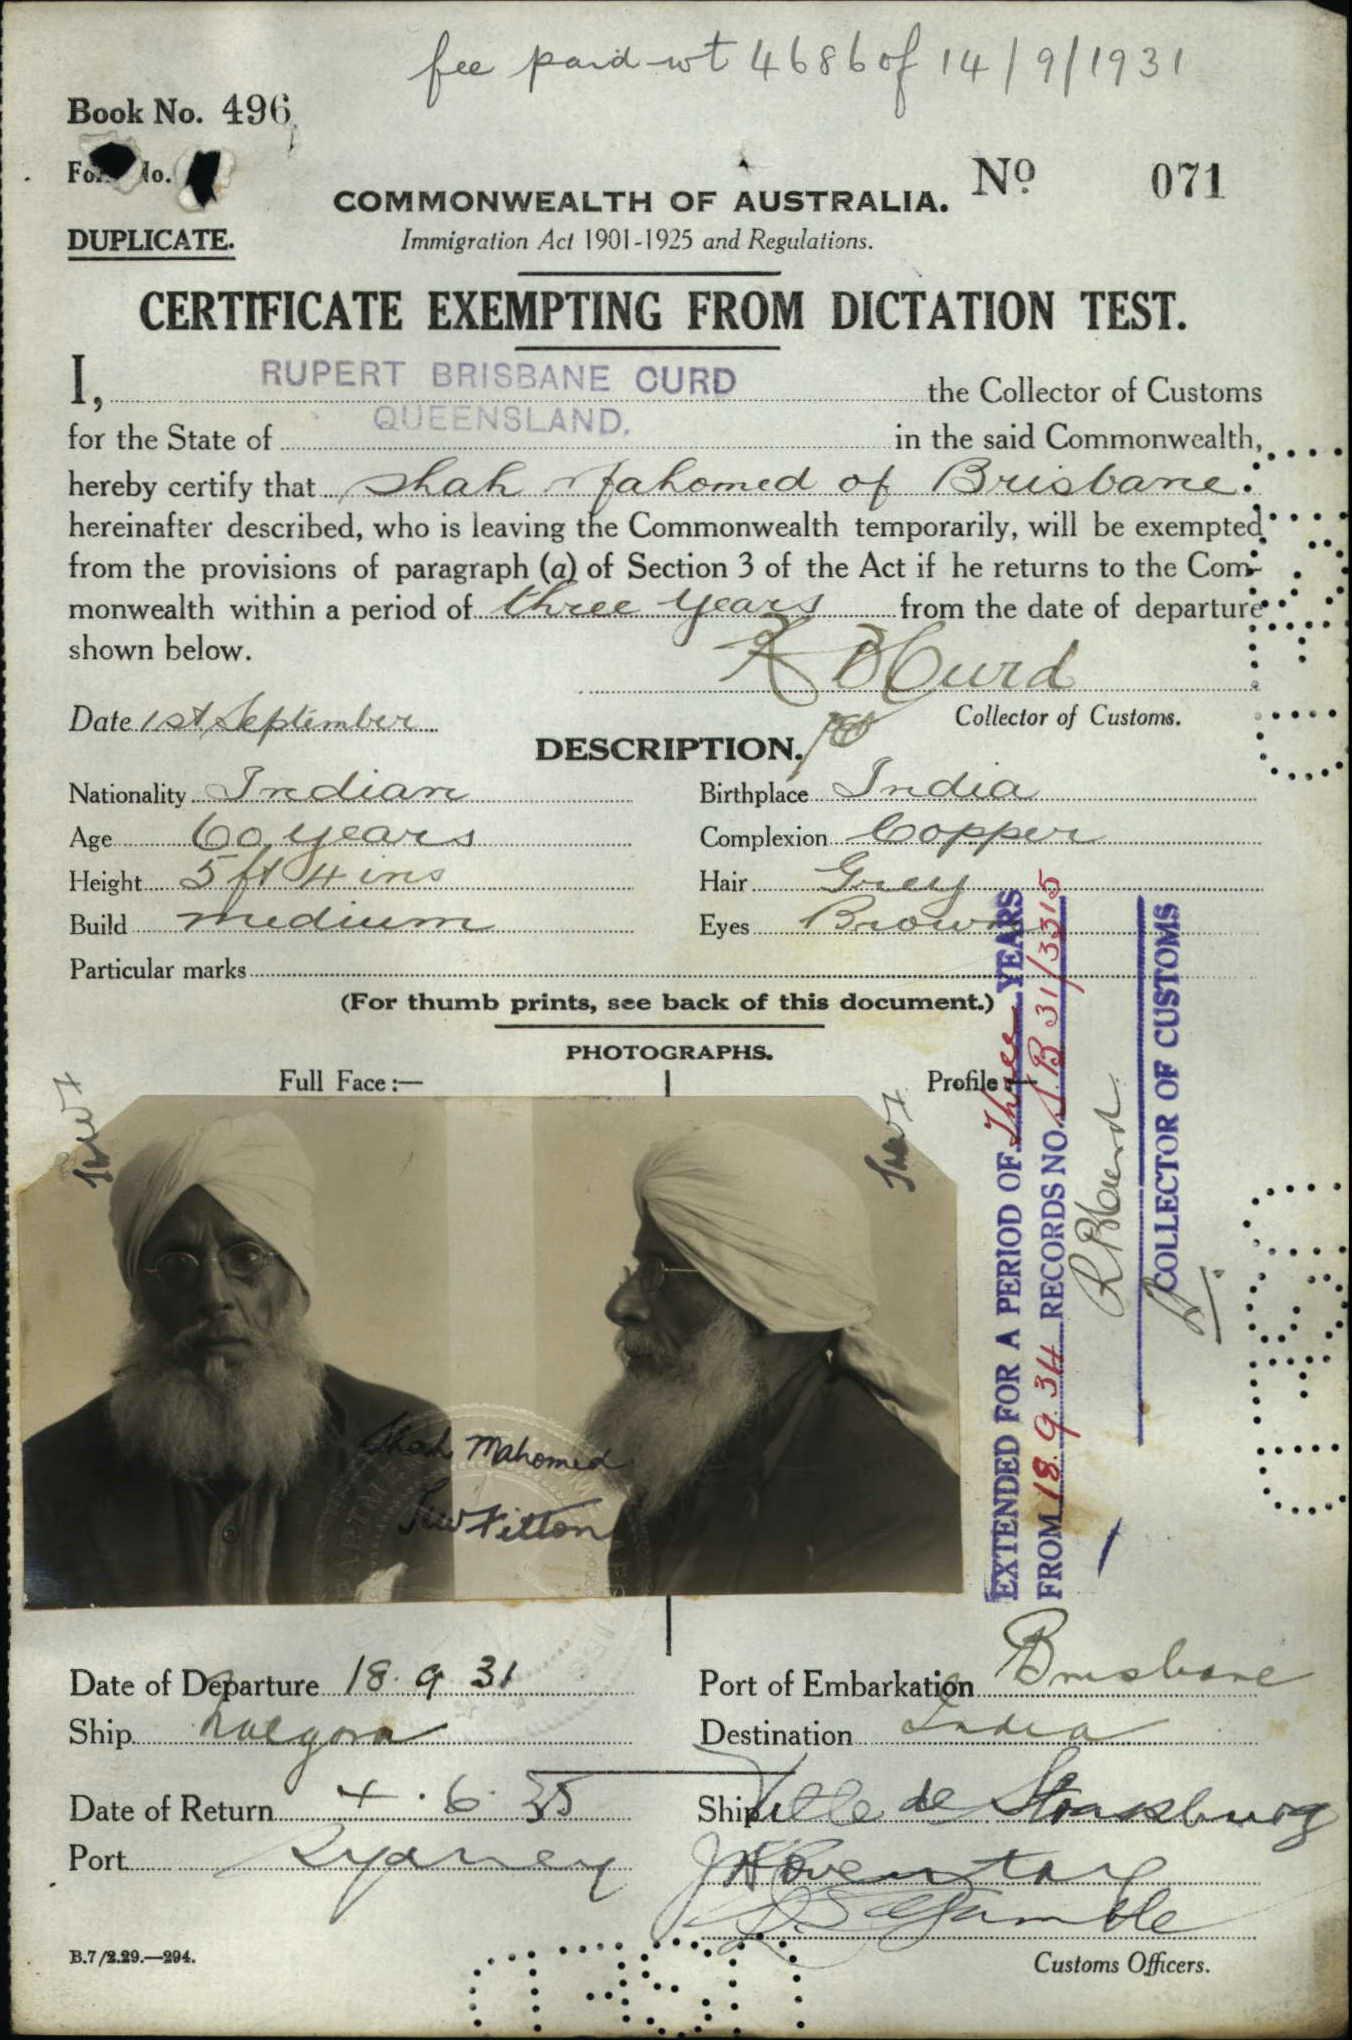 fee paid wt 4686 of 14/9/1931
Book No. 496
No. 071
COMMONWEALTH OF AUSTRALIA.
DUPLICATE.
Immigration Act 1901-1925 and Regulations.
CERTIFICATE EXEMPTING FROM DICTATION TEST.
I, RUPERT BRISBANE CURD the Collector of Customs
for the State of QUEENSLAND. in the said Commonwealth,
hereby certify that Shah Mahomed of Brisbane.
hereinafter described, who is leaving the Commonwealth temporarily, will be exempted
from the provisions of paragraph (a) of Section 3 of the Act if he returns to the Com-
monwealth within a period of three years from the date of departure
shown below.
R B Curd
Date 1st September Collector of Customs.
DESCRIPTION.
Nationality Indian Birthplace India
Age 60 years Complexion Copper
Height 5 ft 4 ins Hair Grey
Build medium Eyes Brown
Particular marks
(For thumb prints, see back of this document.)
PHOTOGRAPHS.
Full Face:— Profile:—
Shah Mahomed
EXTENDED FOR A PERIOD OF Three YEARS
FROM 18.9.34 RECORDS NO. I.B 31/3315
R B Curd
COLLECTOR OF CUSTOMS
Date of Departure 18.9.31 Port of Embarkation Brisbane
Ship Nalgora Destination India
Date of Return 4.6.35 Ship Ville de Strasbourg
Port Sydney
Gamble
B.7/2.29.—294. Customs Officers.